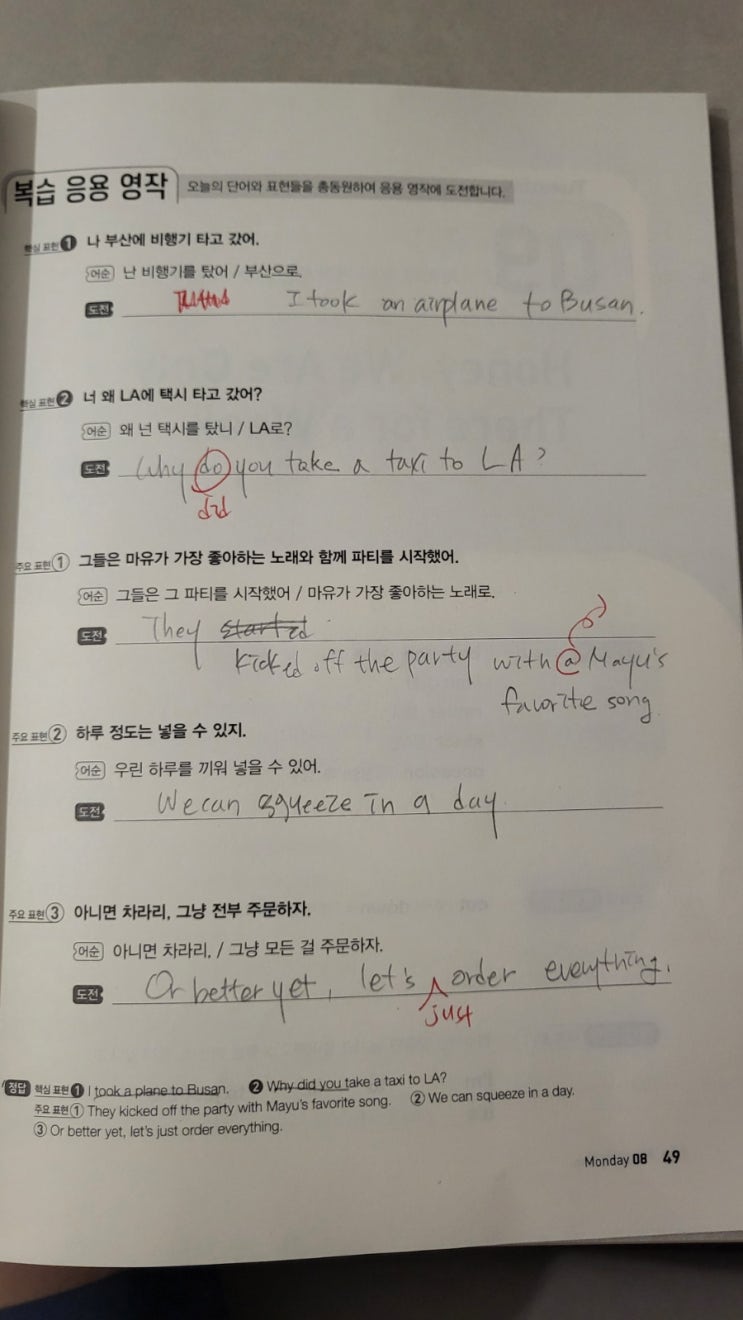 복습 응용 영작 오늘의 단어와 표현들을 총동원하여 응용 영작에 도전합니다.
핵심 표현 1 나 부산에 비행기 타고 갔어.
어순 난 비행기를 탔어 / 부산으로.
도전 I took an airplane to Busan.
핵심 표현 2 너 왜 LA에 택시 타고 갔어?
어순 왜 넌 택시를 탔니 / LA로?
도전 Why do you take a taxi to LA?
did
주요 표현 1 그들은 마유가 가장 좋아하는 노래와 함께 파티를 시작했어.
어순 그들은 그 파티를 시작했어 / 마유가 가장 좋아하는 노래로.
도전 They started
kicked off the party with a Mayu's
favorite song.
주요 표현 2 하루 정도는 넣을 수 있지.
어순 우린 하루를 끼워 넣을 수 있어.
도전 We can squeeze in a day.
주요 표현 3 아니면 차라리, 그냥 전부 주문하자.
어순 아니면 차라리, / 그냥 모든 걸 주문하자.
도전 Or better yet, let's order everything.
just
정답 핵심 표현 1 I took a plane to Busan. 2 Why did you take a taxi to LA?
주요 표현 1 They kicked off the party with Mayu's favorite song. 2 We can squeeze in a day.
3 Or better yet, let's just order everything.
Monday 08 49